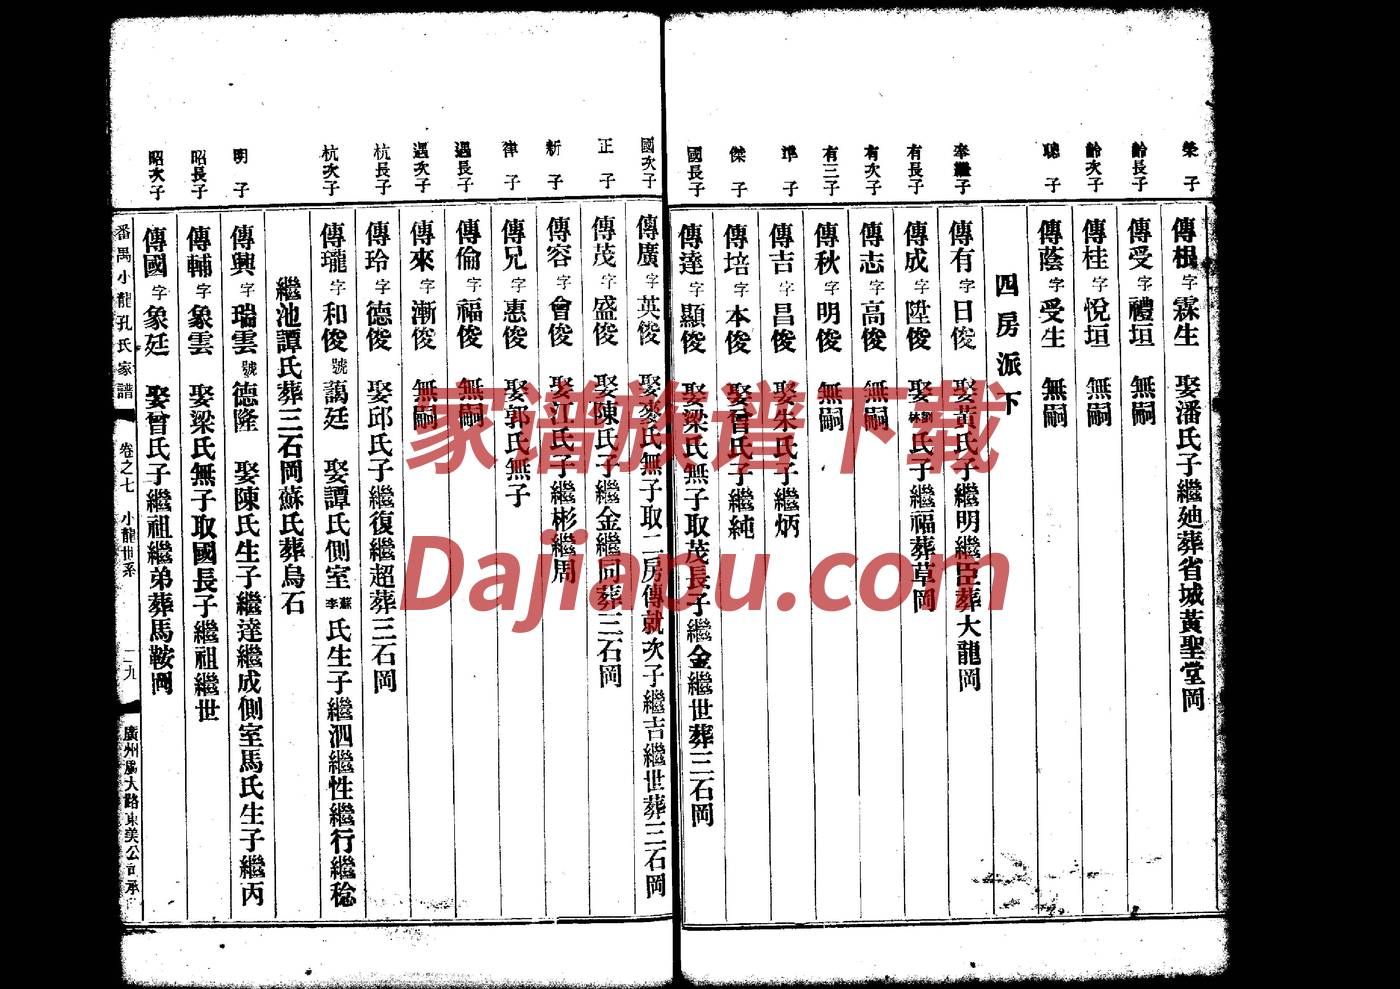 榮子 傳根字霖生 娶潘氏子繼廸葬省城黃聖堂岡
齡長子 傳受字禮垣 無嗣
齡次子 傳桂字悅垣 無嗣
聰子 傳蔭字受生 無嗣
四房派下
奉繼子 傳有字日俊 娶黃氏子繼明繼臣葬大龍岡
有長子 傳成字陞俊 娶劉林氏子繼福葬草岡
有次子 傳志字高俊 無嗣
有三子 傳秋字明俊 無嗣
準子 傳吉字昌俊 娶朱氏子繼炳
傑子 傳培字本俊 娶曾氏子繼純
國長子 傳達字顯俊 娶梁氏無子取茂長子繼金繼世葬三石岡
國次子 傳廣字英俊 娶麥氏無子取二房傳就次子繼吉繼世葬三石岡
正子 傳茂字盛俊 娶陳氏子繼金繼同葬三石岡
新子 傳容字會俊 娶江氏子繼彬繼周
律子 傳兄字惠俊 娶郭氏無子
遇長子 傳倫字福俊 無嗣
遇次子 傳來字漸俊 無嗣
杭長子 傳玲字德俊 娶邱氏子繼復繼超葬三石岡
杭次子 傳瓏字和俊號藹廷 娶譚氏側室蘇李氏生子繼泗繼性繼行繼稔
繼池譚氏葬三石岡蘇氏葬烏石
明子 傳興字瑞雲號德隆 娶陳氏生子繼達繼成側室馬氏生子繼丙
昭長子 傳輔字象雲 娶梁氏無子取國長子繼祖繼世
昭次子 傳國字象廷 娶曾氏子繼祖繼弟葬馬鞍岡
番禺小龍孔氏家譜 卷之七 小龍世系 二九 廣州惠大路東美公司承
家谱族谱下载
Dajiapu.com